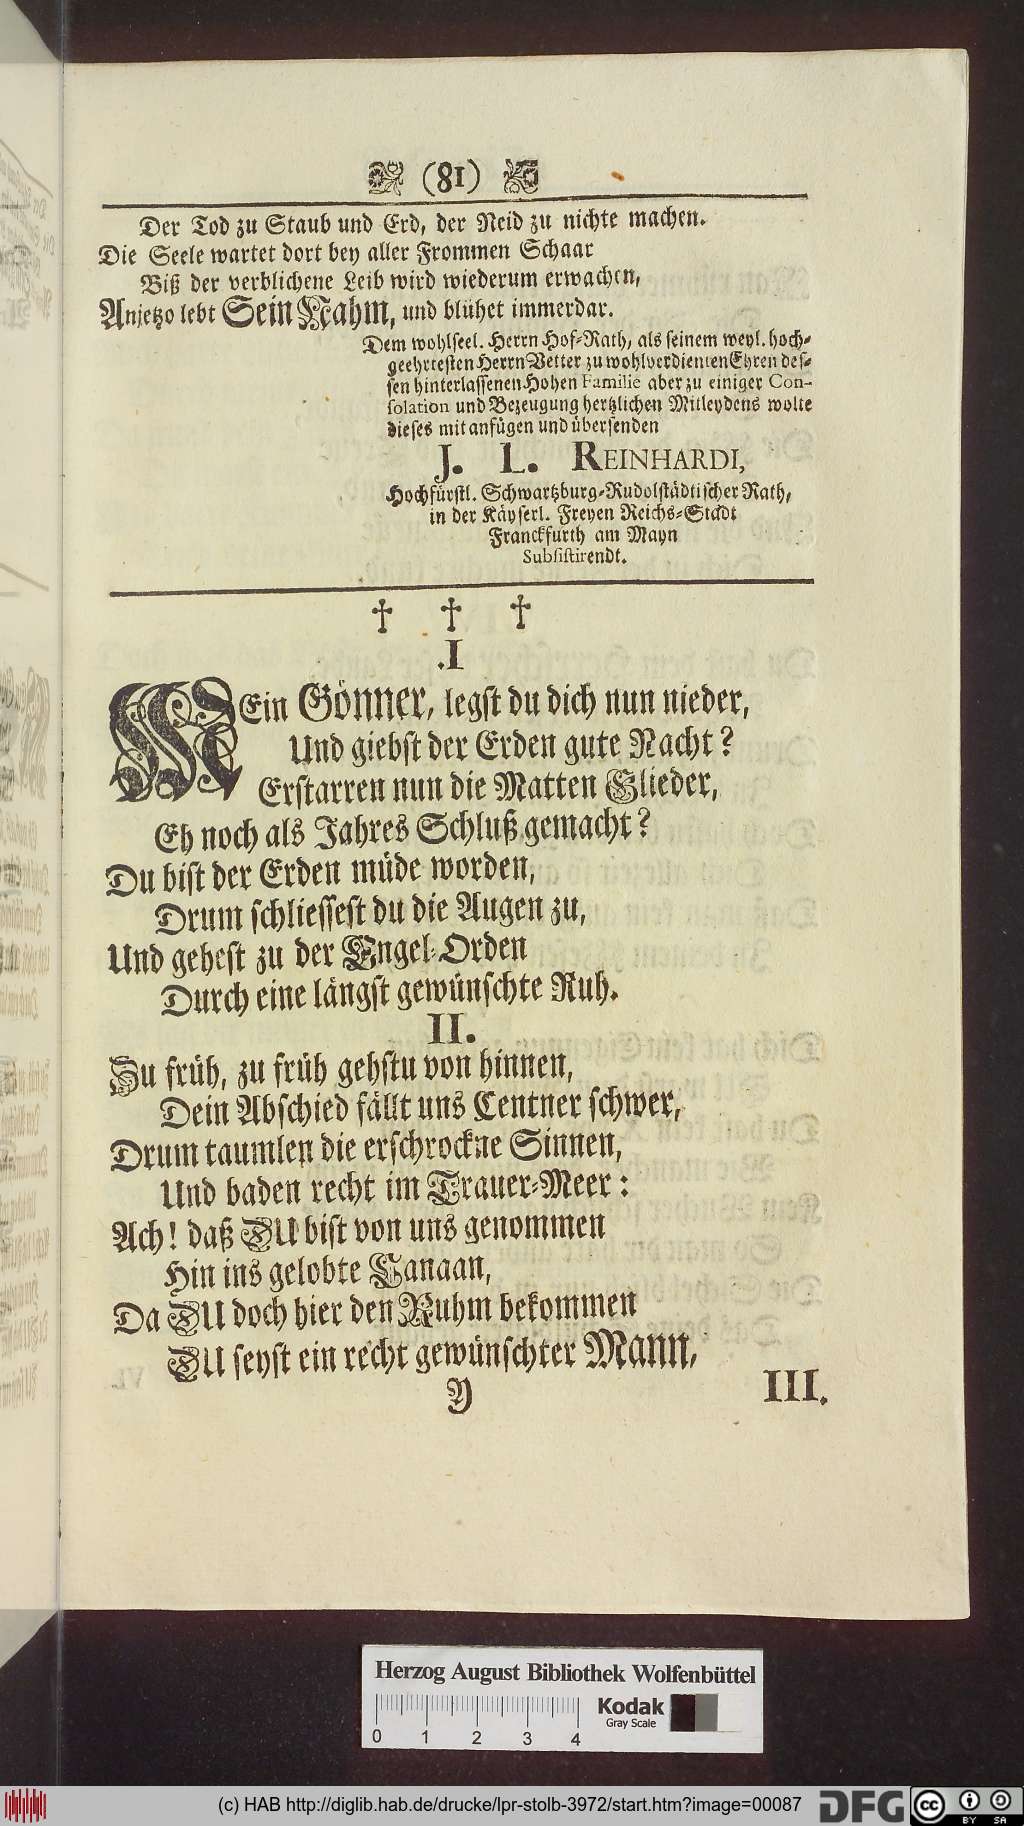 (81)
Der Tod zu Staub und Erd, der Neid zu nichte machen.
Die Seele wartet dort bey aller Frommen Schaar
Biß der verblichene Leib wird wiederum erwachen,
Anjetzo lebt Sein Nahm, und blühet immerdar.
Dem wohlseel. Herrn Hof-Rath, als seinem weyl. hoch-
geehrtesten Herrn Vetter zu wohlverdienten Ehren des-
sen hinterlassenen Hohen Familie aber zu einiger Con-
solation und Bezeugung hertzlichen Mitleydens wolte
dieses mit anfügen und übersenden
J. L. REINHARDI,
Hochfürstl. Schwartzburg-Rudolstädtischer Rath,
in der Käyserl. Freyen Reichs-Stadt
Franckfurth am Mayn
Subsistirendt.
† † †
.I
MEin Gönner, legst du dich nun nieder,
Und giebst der Erden gute Nacht?
Erstarren nun die Matten Glieder,
Eh noch als Jahres Schluß gemacht?
Du bist der Erden müde worden,
Drum schliessest du die Augen zu,
Und gehest zu der Engel-Orden
Durch eine längst gewünschte Ruh.
II.
Zu früh, zu früh gehstu von hinnen,
Dein Abschied fällt uns Centner schwer,
Drum taumlen die erschrockne Sinnen,
Und baden recht im Trauer-Meer:
Ach! daß DU bist von uns genommen
Hin ins gelobte Canaan,
Da DU doch hier den Ruhm bekommen
DU seyst ein recht gewünschter Mann,
Y
III.
Herzog August Bibliothek Wolfenbüttel
Kodak
Gray Scale
0 1 2 3 4
(c) HAB http://diglib.hab.de/drucke/lpr-stolb-3972/start.htm?image=00087
DFG
cc BY SA